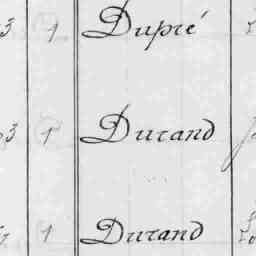 3 1 Dupré
3 1 Durand
1 Durand